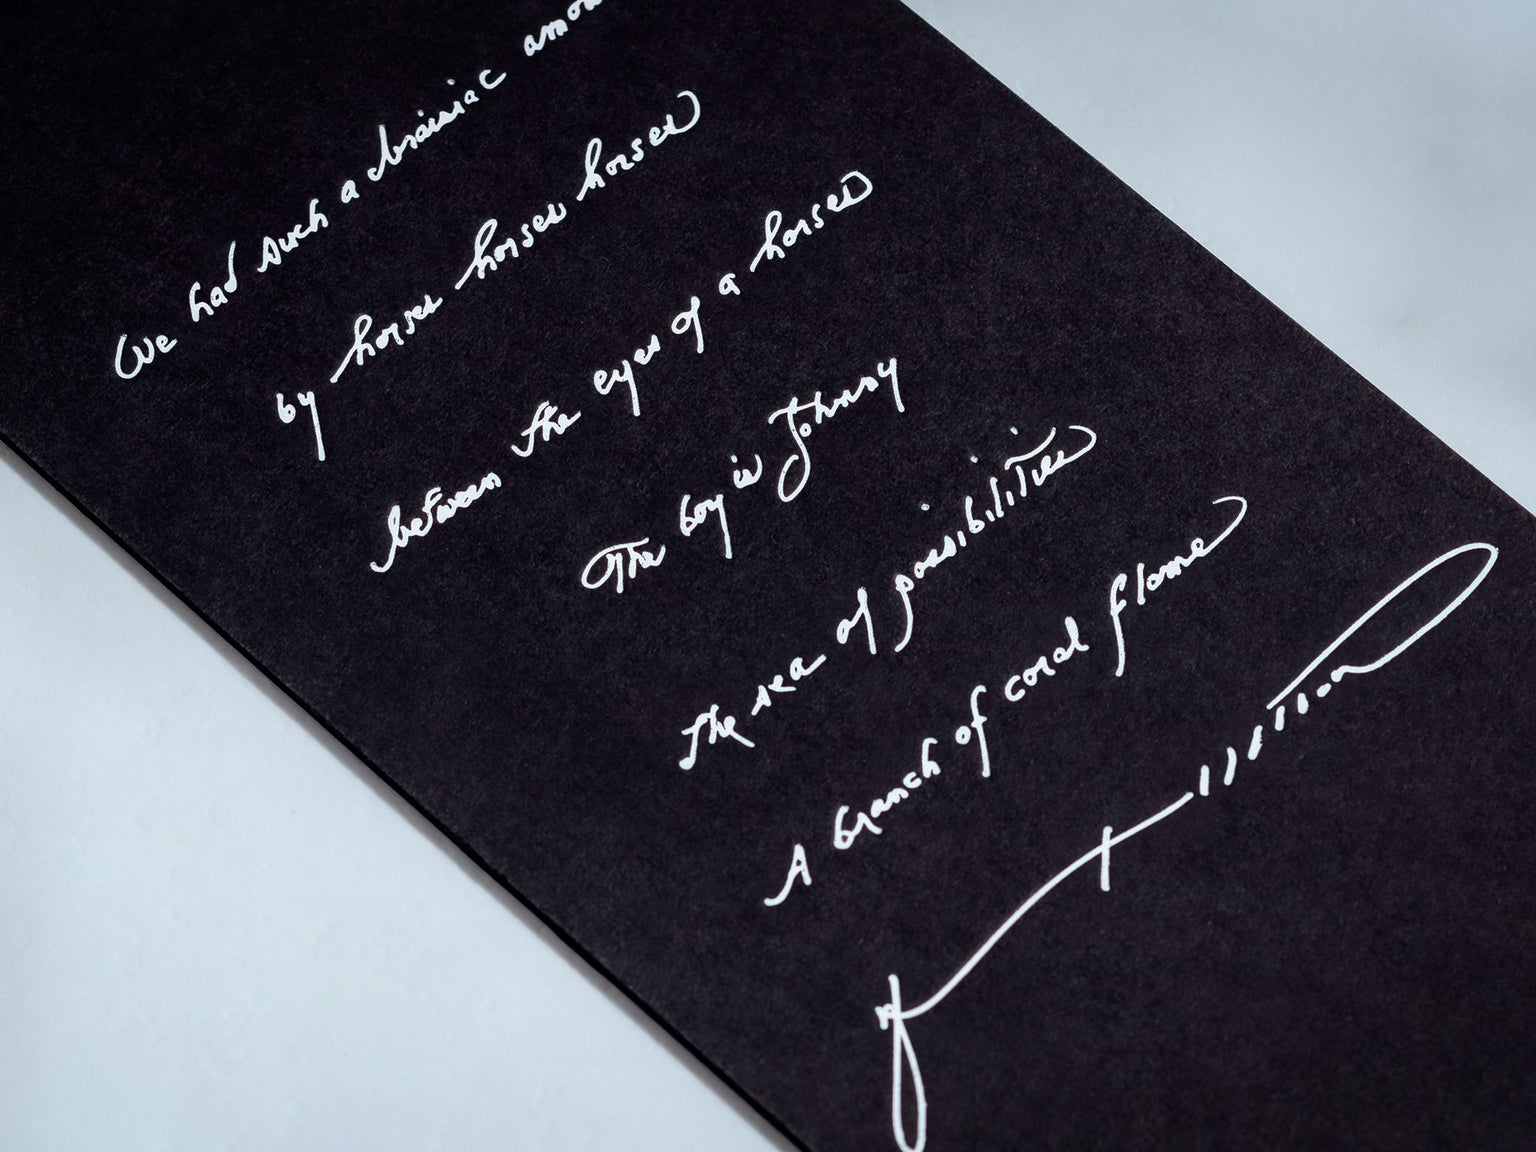 We had such a brainiac amon
by horses horses horses
between the eyes of a horses
The boy is Johnny
the sea of possibilities
A branch of coral flame